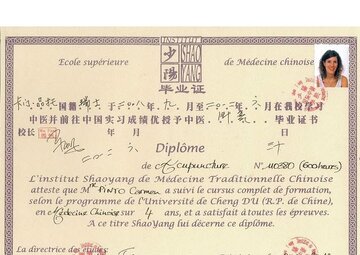 INSTITUT
Ecole supérieure
少陽
SHAO YANG
de Médecine chinoise
毕业证
国籍 瑞士 于二〇〇八年九月至二〇一二年六月在我校学习
中医并前往中国实习成绩优授予中医 毕业证书
校长 年 月 日
二〇一二 六 三十
Diplôme
de Acupuncture N° (600 heures)
L'institut Shaoyang de Médecine Traditionnelle Chinoise
atteste que M PINTO Carmen a suivi le cursus complet de formation,
selon le programme de l'Université de Cheng DU (R.P. de Chine),
en Médecine Chinoise sur 4 ans, et a satisfait à toutes les épreuves.
A ce titre ShaoYang lui décerne ce diplôme.
La directrice des
études: